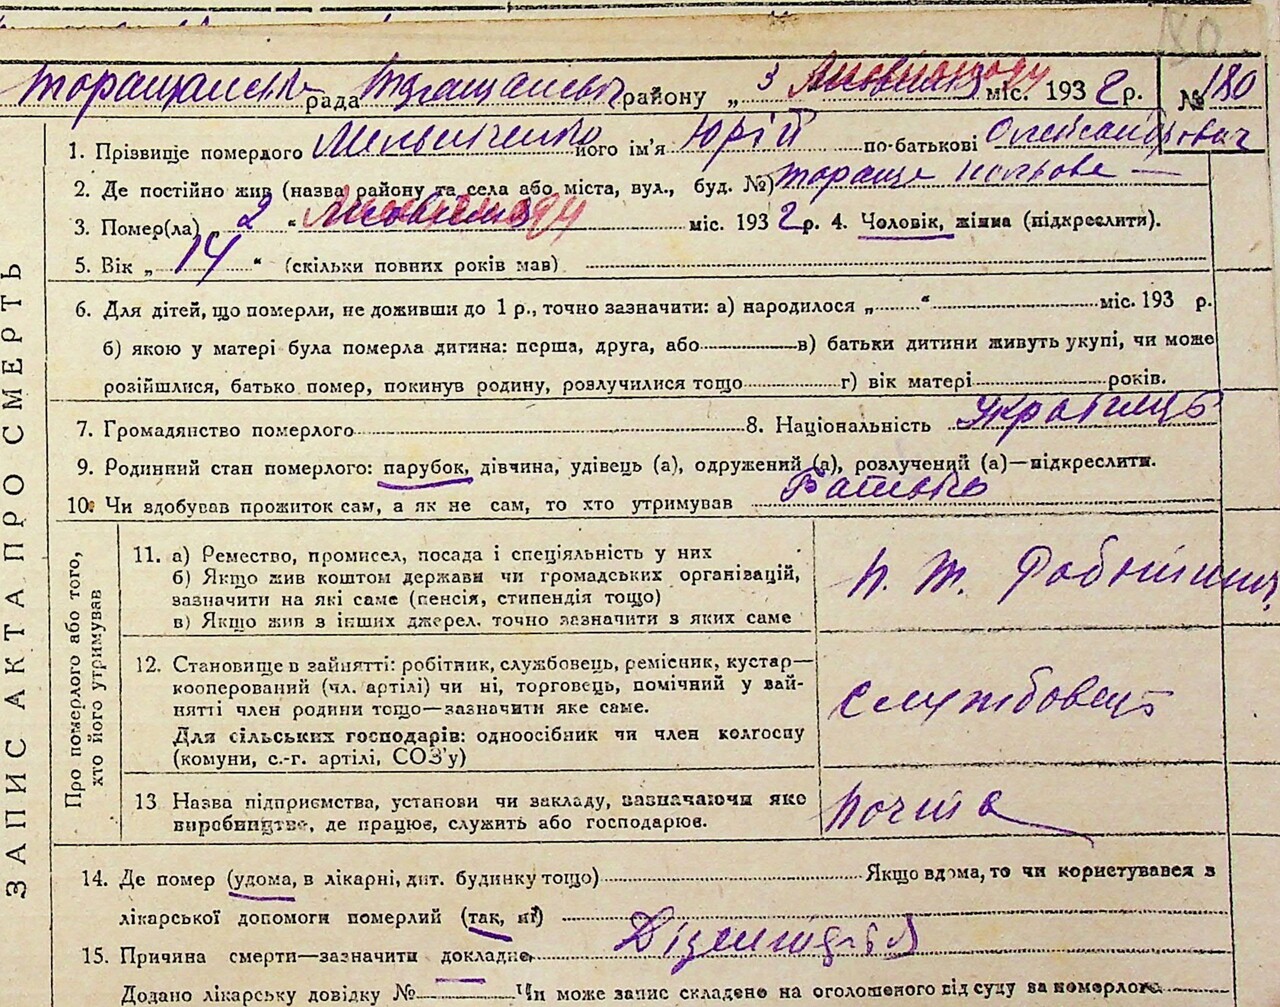 80
Торащанська рада Тращанського району „ 3 міс. 1932 р. № 180
ЗАПИС АКТА ПРО СМЕРТЬ
1. Прізвище померлого Мельниченко його ім'я Юрій по-батькові Олександрович
2. Де постійно жив (назва району та села або міста, вул., буд. №) тораще польова —
3. Помер(ла) „ 2 “ міс. 1932 р. 4. Чоловік, жінка (підкреслити).
5. Вік „ 14 “ (скільки повних років мав)
6. Для дітей, що померли, не доживши до 1 р., точно зазначити: а) народилося „ “ міс. 193 р.
б) якою у матері була померла дитина: перша, друга, або в) батьки дитини живуть укупі, чи може
розійшлися, батько помер, покинув родину, розлучилися тощо г) вік матері років.
7. Громадянство померлого 8. Національність Українець
9. Родинний стан померлого: парубок, дівчина, удівець (а), одружений (а), розлучений (а)—підкреслити.
10. Чи здобував прожиток сам, а як не сам, то хто утримував Батько
Про померлого або того,
хто його утримував
11. а) Ремество, промисел, посада і спеціяльність у них
б) Якщо жив коштом держави чи громадських організацій,
зазначити на які саме (пенсія, стипендія тощо)
в) Якщо жив з інших джерел, точно зазначити з яких саме
п. т. Робітник
12. Становище в зайнятті: робітник, службовець, ремісник, кустар—
кооперований (чл. артілі) чи ні, торговець, помічний у зай-
нятті член родини тощо—зазначити яке саме.
Для сільських господарів: одноосібник чи член колгоспу
(комуни, с.-г. артілі, СОЗ'у)
службовець
13 Назва підприємства, установи чи закладу, зазначаючи яке
виробництво, де працює, служить або господарює.
почта
14. Де помер (удома, в лікарні, дит. будинку тощо) Якщо вдома, то чи користувався з
лікарської допомоги померлий (так, ні)
15. Причина смерти—зазначити докладне Дізентерія
Додано лікарську довідку № Чи може запис складено на оголошеного від суду за померлого